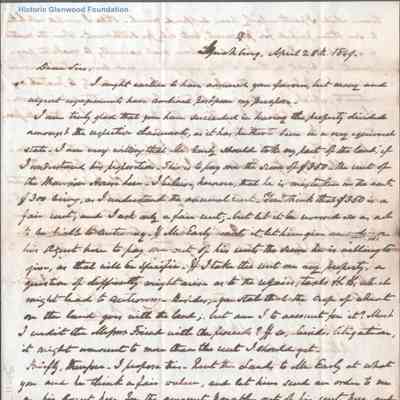 Historic Glenwood Foundation
Lynchburg, April 28th 1849.
Dear Sir,
I ought earlier to have answered your favour, but many and
urgent engagements have combined to stop my purpose.
I am truly glad that you have succeeded in having the property divided
amongst the respective claimants, as it has hitherto been in a very
state. I am very willing that Mr. Early should take my part of the land, if
I understand his proposition. It is to pay me the sum of $350 - the rent of
the Mansion House here. I believe, however, that he is mistaken in the rent
$300 being, as I understand the annual rent. You think that $350 is a
fair rent, and I ask only a fair rent, but let it be so, as
to be liable to. If Mr Early rents it let him give me an on
his agent here to pay me out of his rents the sum he is willing to
give, as that will be specific. If I take this rent on my property, a
question of difficulty might arise as to the repairs, taxes &c &c, which
might lead to. Besides, you state that the crop of wheat
on the land goes with the land; but am I to account for it? Must
I credit the Messrs Friend with the proceeds? If so, besides litigation,
it might amount to more than the rent I should get.
Briefly, then, I propose this. Rent the land to Mr Early at what
you and he think a fair value, and let him send an order to me
on his agent here for the amount payable out of his rent here, and